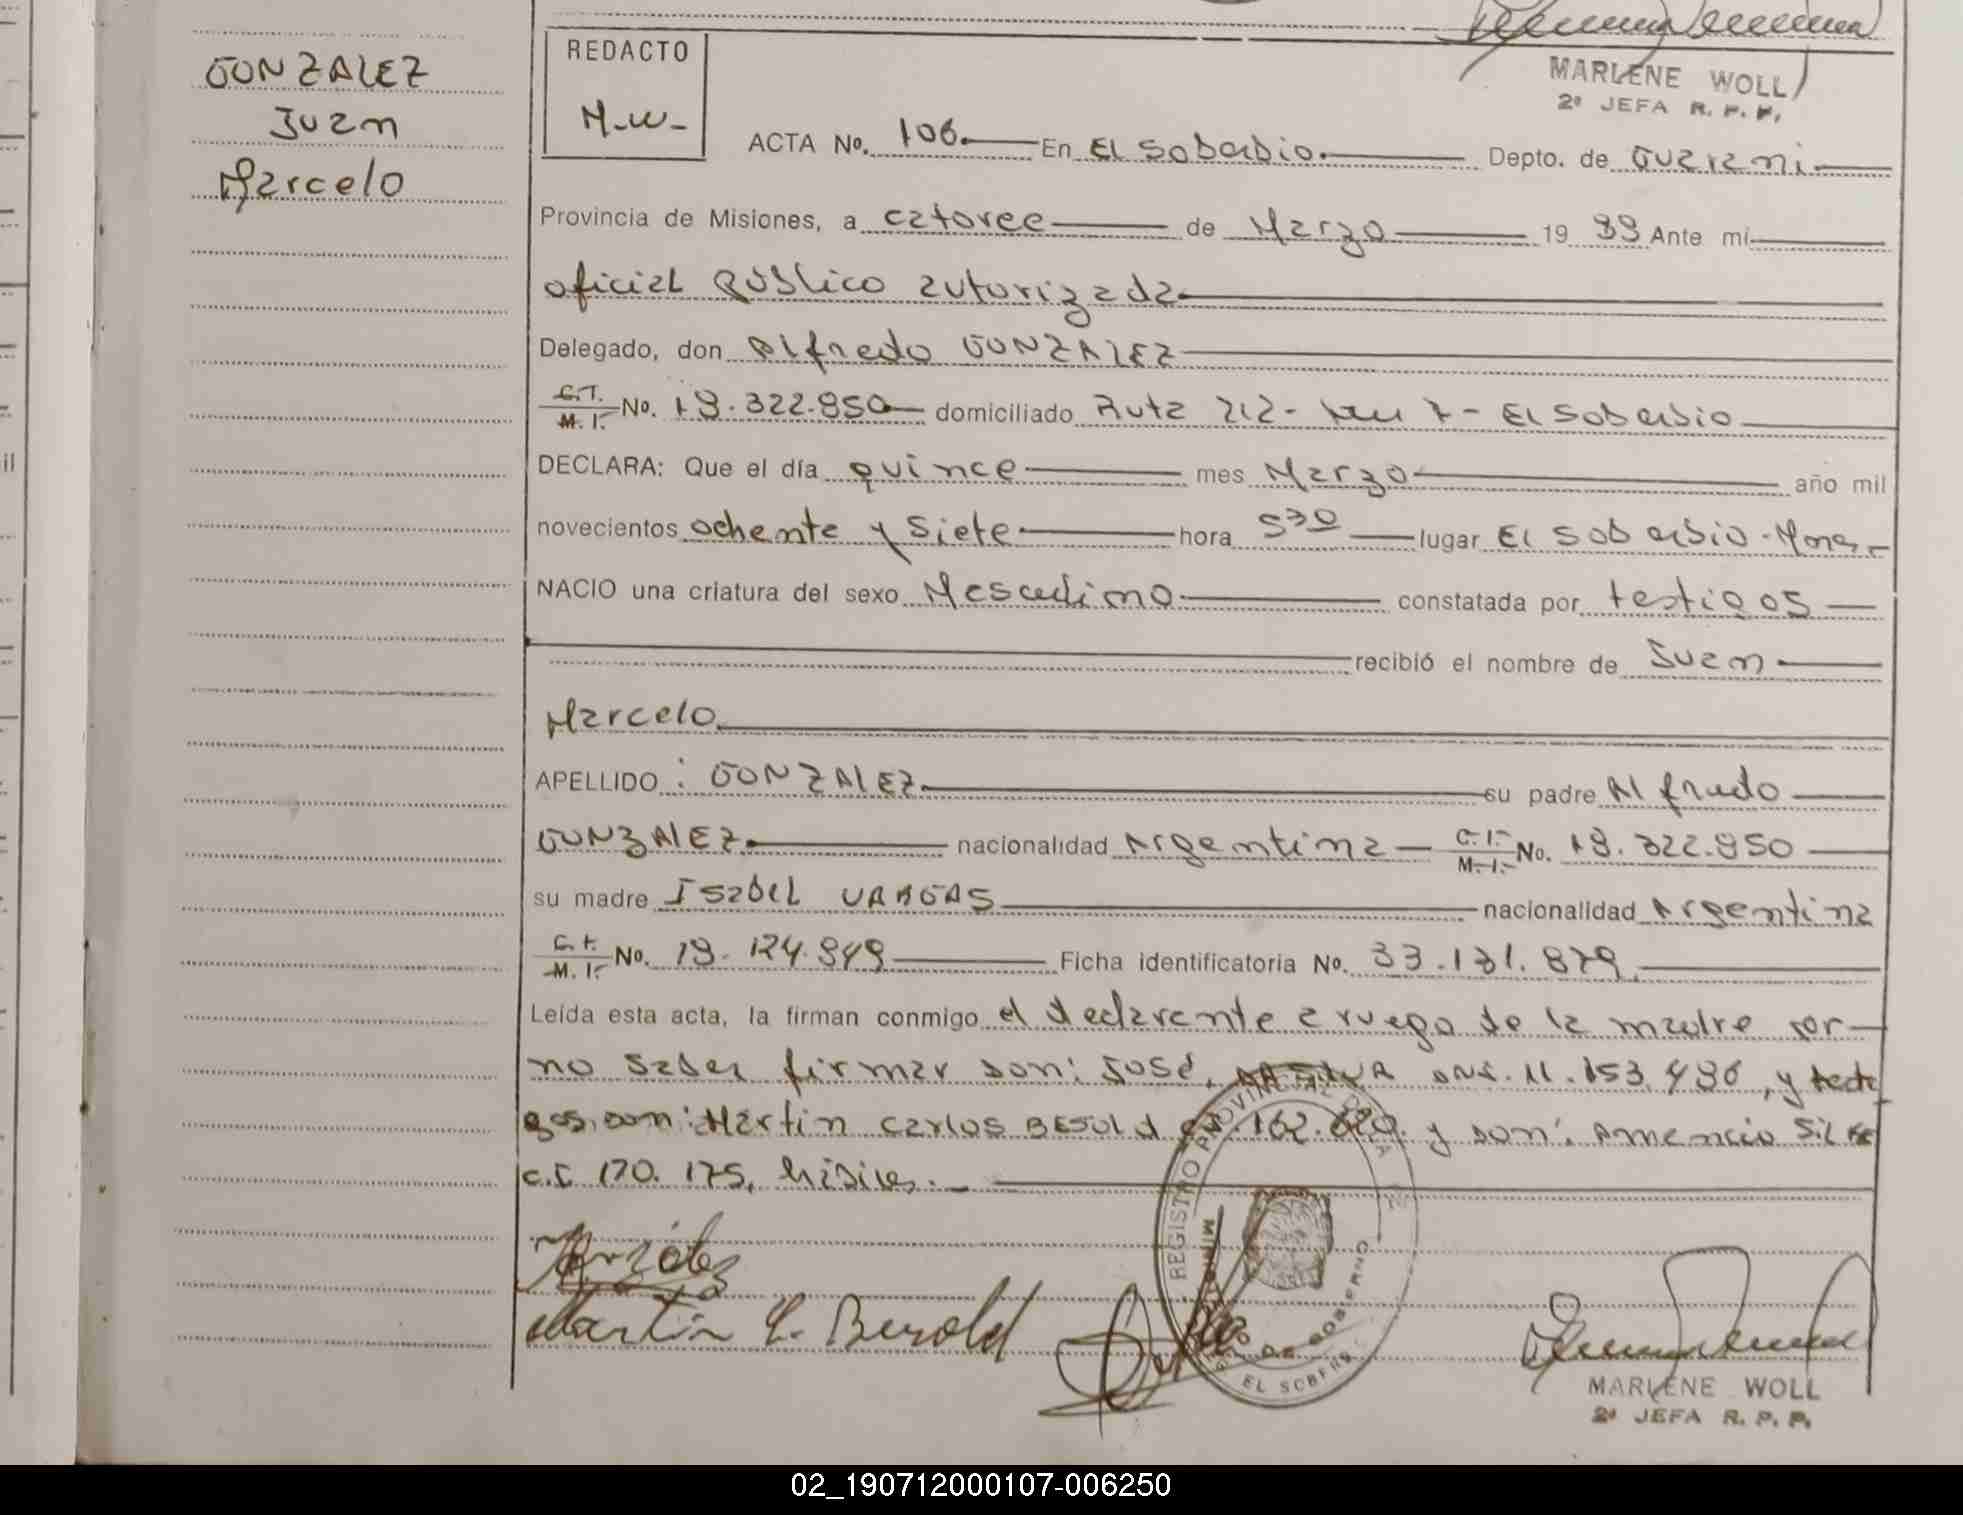 GONZALEZ
Juan
Marcelo
REDACTO
M-W-
MARLENE WOLL
2ª JEFA R. P. P.
ACTA No. 106. En El Soberbio. Depto. de Guarani
Provincia de Misiones, a catorce de Marzo 19 89 Ante mí
oficial Público autorizada
Delegado, don Alfredo GONZALEZ
C.I. M. I. No. 18.322.950 domiciliado Ruta 212- km 7- El Soberbio
DECLARA: Que el día quince mes Marzo año mil
novecientos ochenta y siete hora 5 30 lugar El Soberbio-Mnes-
NACIO una criatura del sexo Masculino constatada por testigos
recibió el nombre de Juan
Marcelo
APELLIDO : GONZALEZ su padre Alfredo
GONZALEZ nacionalidad Argentina C. I. M. I. No. 18.322.950
su madre Isabel VARGAS nacionalidad Argentina
C. I. M. I. No. 18.124.949 Ficha identificatoria No. 33.131.879
Leída esta acta, la firman conmigo el declarante a ruego de la madre por
no saber firmar don: José, DNI. 11.153.496, y testi
gos, don: Martin Carlos BESOLD 162.620. y don: Amancio
C.I 170. 175, hábiles.
REGISTRO PROVINCIAL DE LA
EL SOBERB
GOBIERNO
Martin C. Besold
MARLENE WOLL
2ª JEFA R. P. P.
02_190712000107-006250